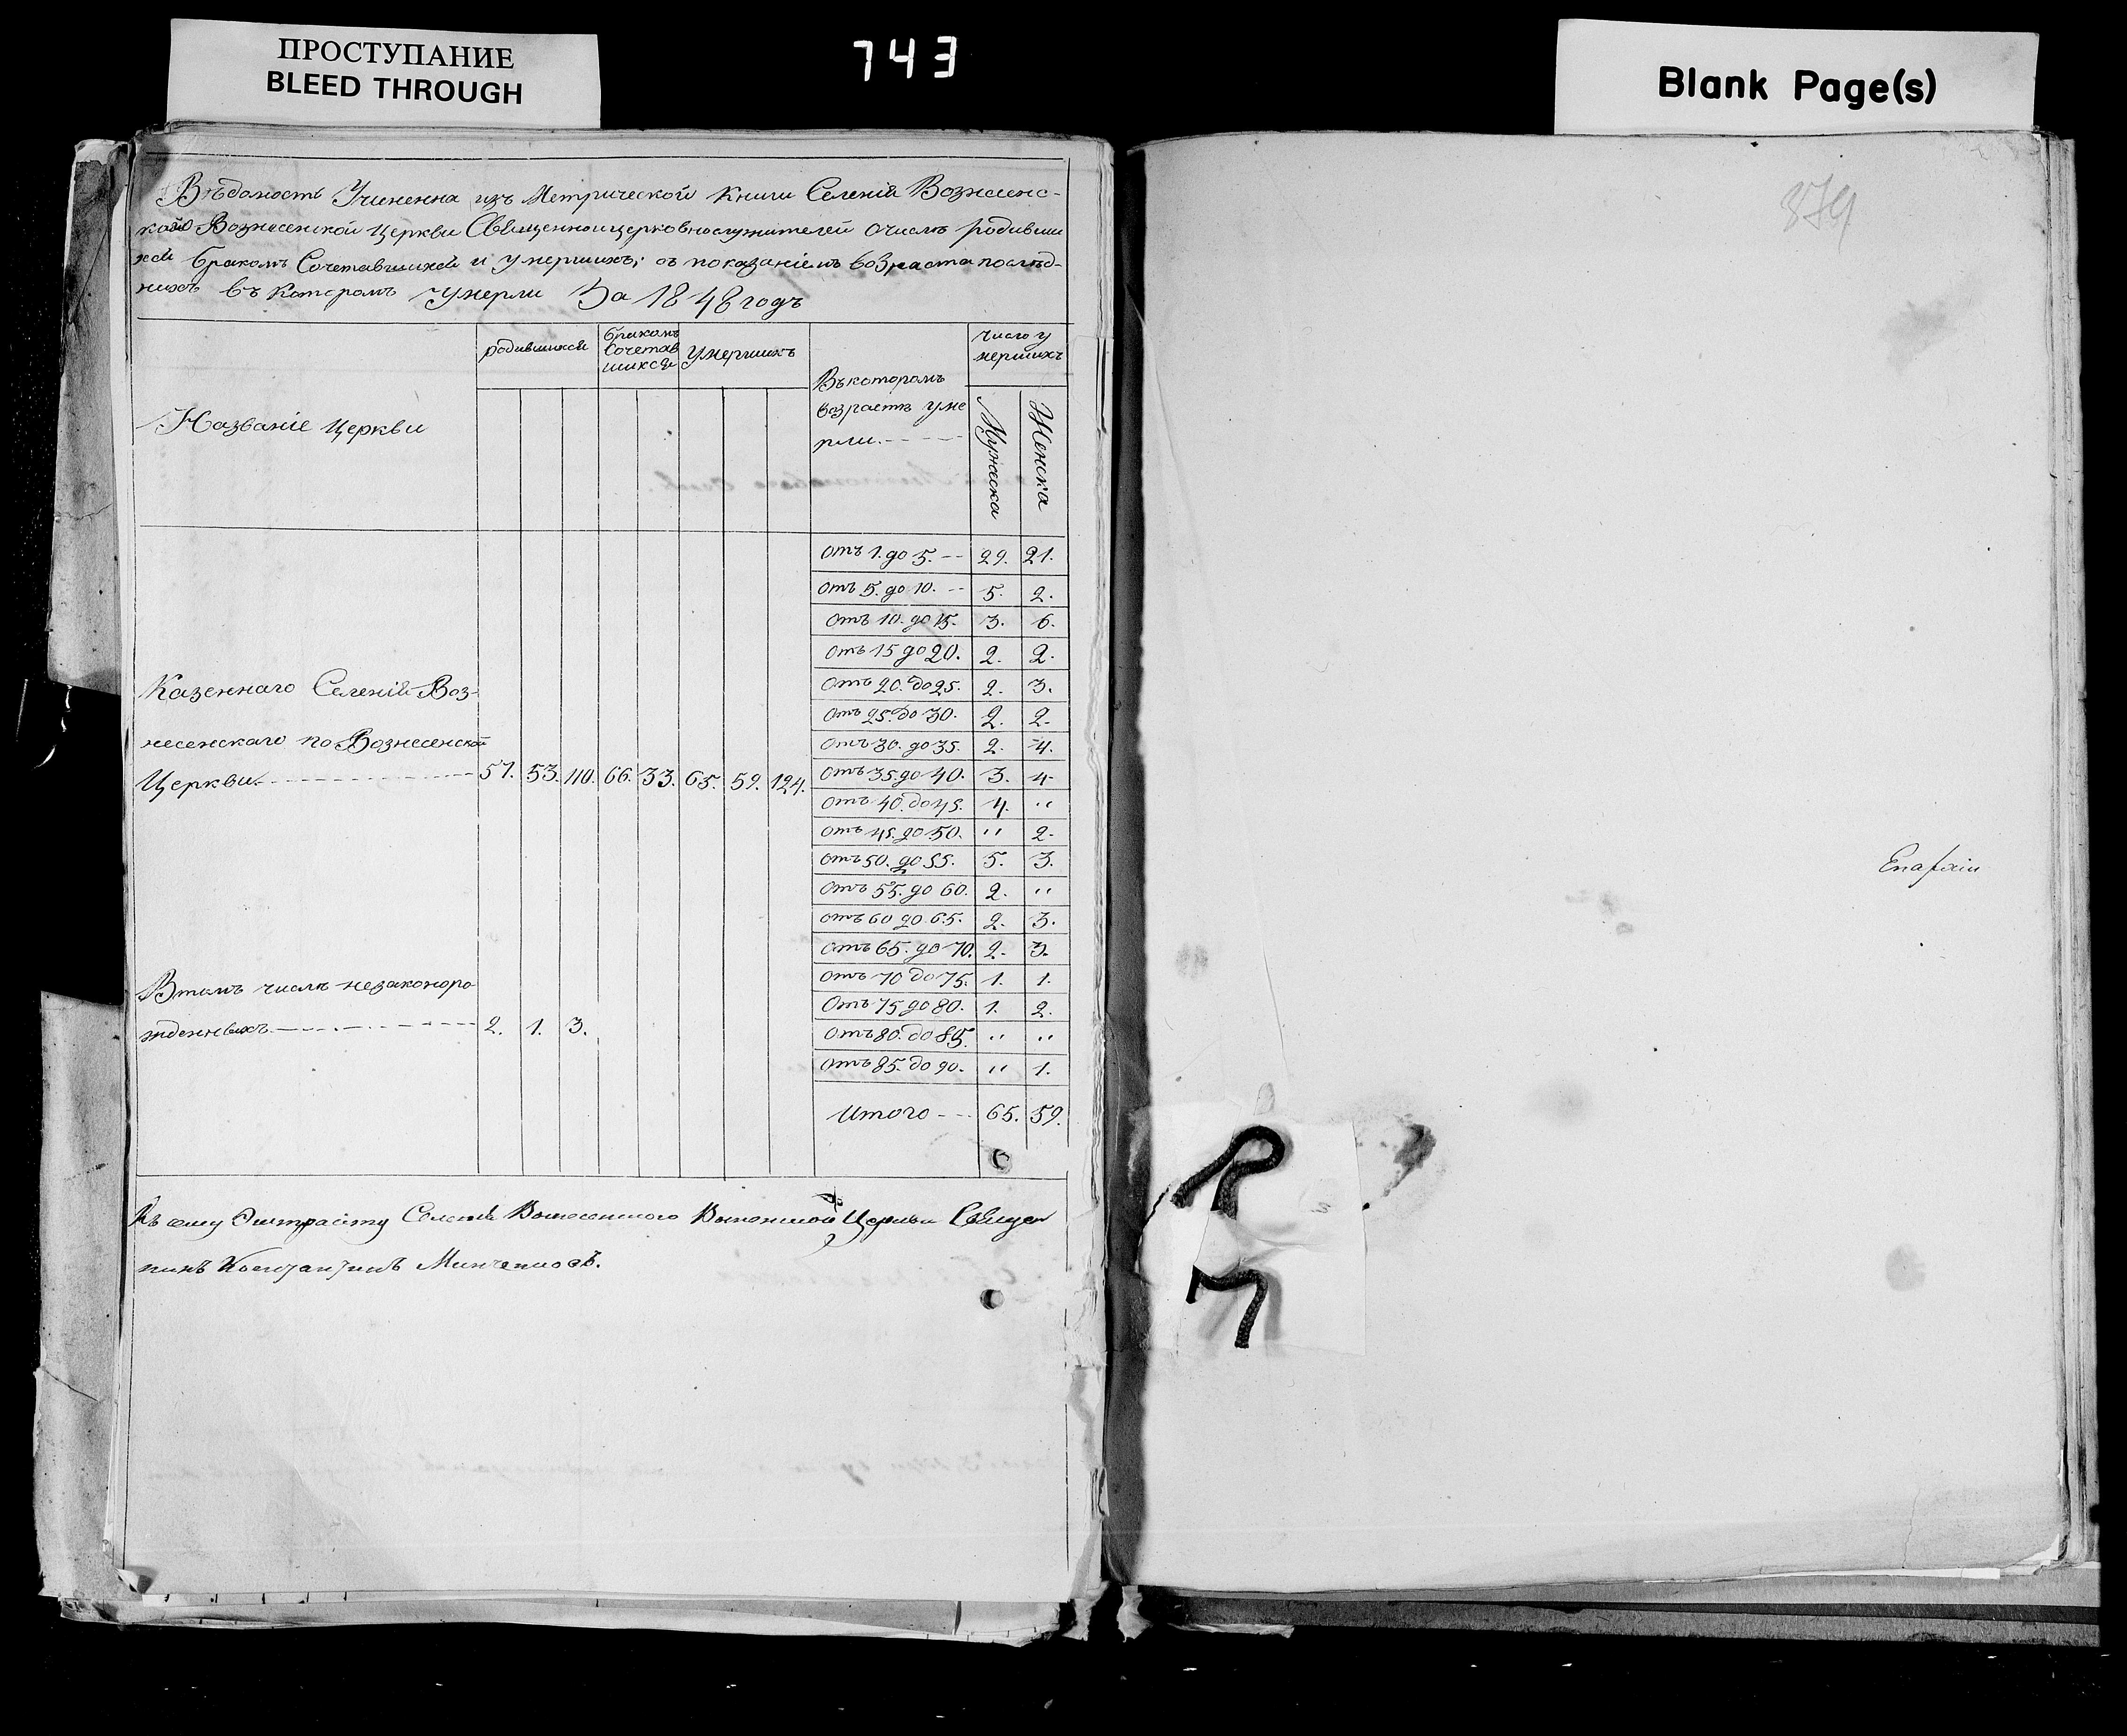 ПРОСТУПАНИЕ
BLEED THROUGH
743
Blank Page(s)
379
Вѣдомость Учиненна изъ Метрической Книги Селенія Вознесенс-
каго Вознесенской Церкви Священноицерковнослужителей очислѣ родивши
хся бракомъ Сочетавшихся и умершихъ; съ показаніемъ возраста послѣд-
нихъ въ которомъ умерли За 1848 годъ
Названіе Церкви
родившихся
бракомъ
Сочетав
шихся
умершихъ
Въкоторомъ
возрастѣ уме
рли.
число у
мершихъ
Мужеска
Женска
отъ 1. до 5. -- 29. 21.
отъ 5. до 10. -- 5. 2.
отъ 10. до 15. 3. 6.
отъ 15 до 20. 2. 2.
отъ 20. до 25. 2. 3.
отъ 25. до 30. 2. 2.
отъ 30. до 35. 2. 4.
отъ 35 до 40. 3. 4.
отъ 40. до 45. 4. "
отъ 45. до 50. " 2.
отъ 50. до 55. 5. 3.
отъ 55. до 60. 2. "
отъ 60 до 65. 2. 3.
отъ 65. до 70. 2. 3.
отъ 70 до 75. 1. 1.
отъ 75 до 80. 1. 2.
отъ 80. до 85. " "
отъ 85. до 90. " 1.
Итого --- 65. 59.
Казеннаго Селенія Воз-
несенскаго по Вознесенской
Церкви. 57. 53. 110. 66. 33. 65. 59. 124.
Втомъ числѣ незаконоро
жденныхъ 2. 1. 3.
Къ сему Экстракту Селенія Вознесенскаго Вознесенской Церкви Священ
никъ Константинъ Минченковъ.